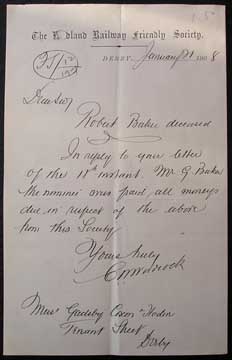 The Midland Railway Friendly Society.
DERBY, January 21 1908
Dear Sir,
Robert Baker deceased
In reply to your letter
of the 18th instant. Mr G. Baker
the nominee was paid all moneys
due in respect of the above
from this Society
Yours truly
Messrs Gadsby Coxon & Hoden
Tenant Street
Derby